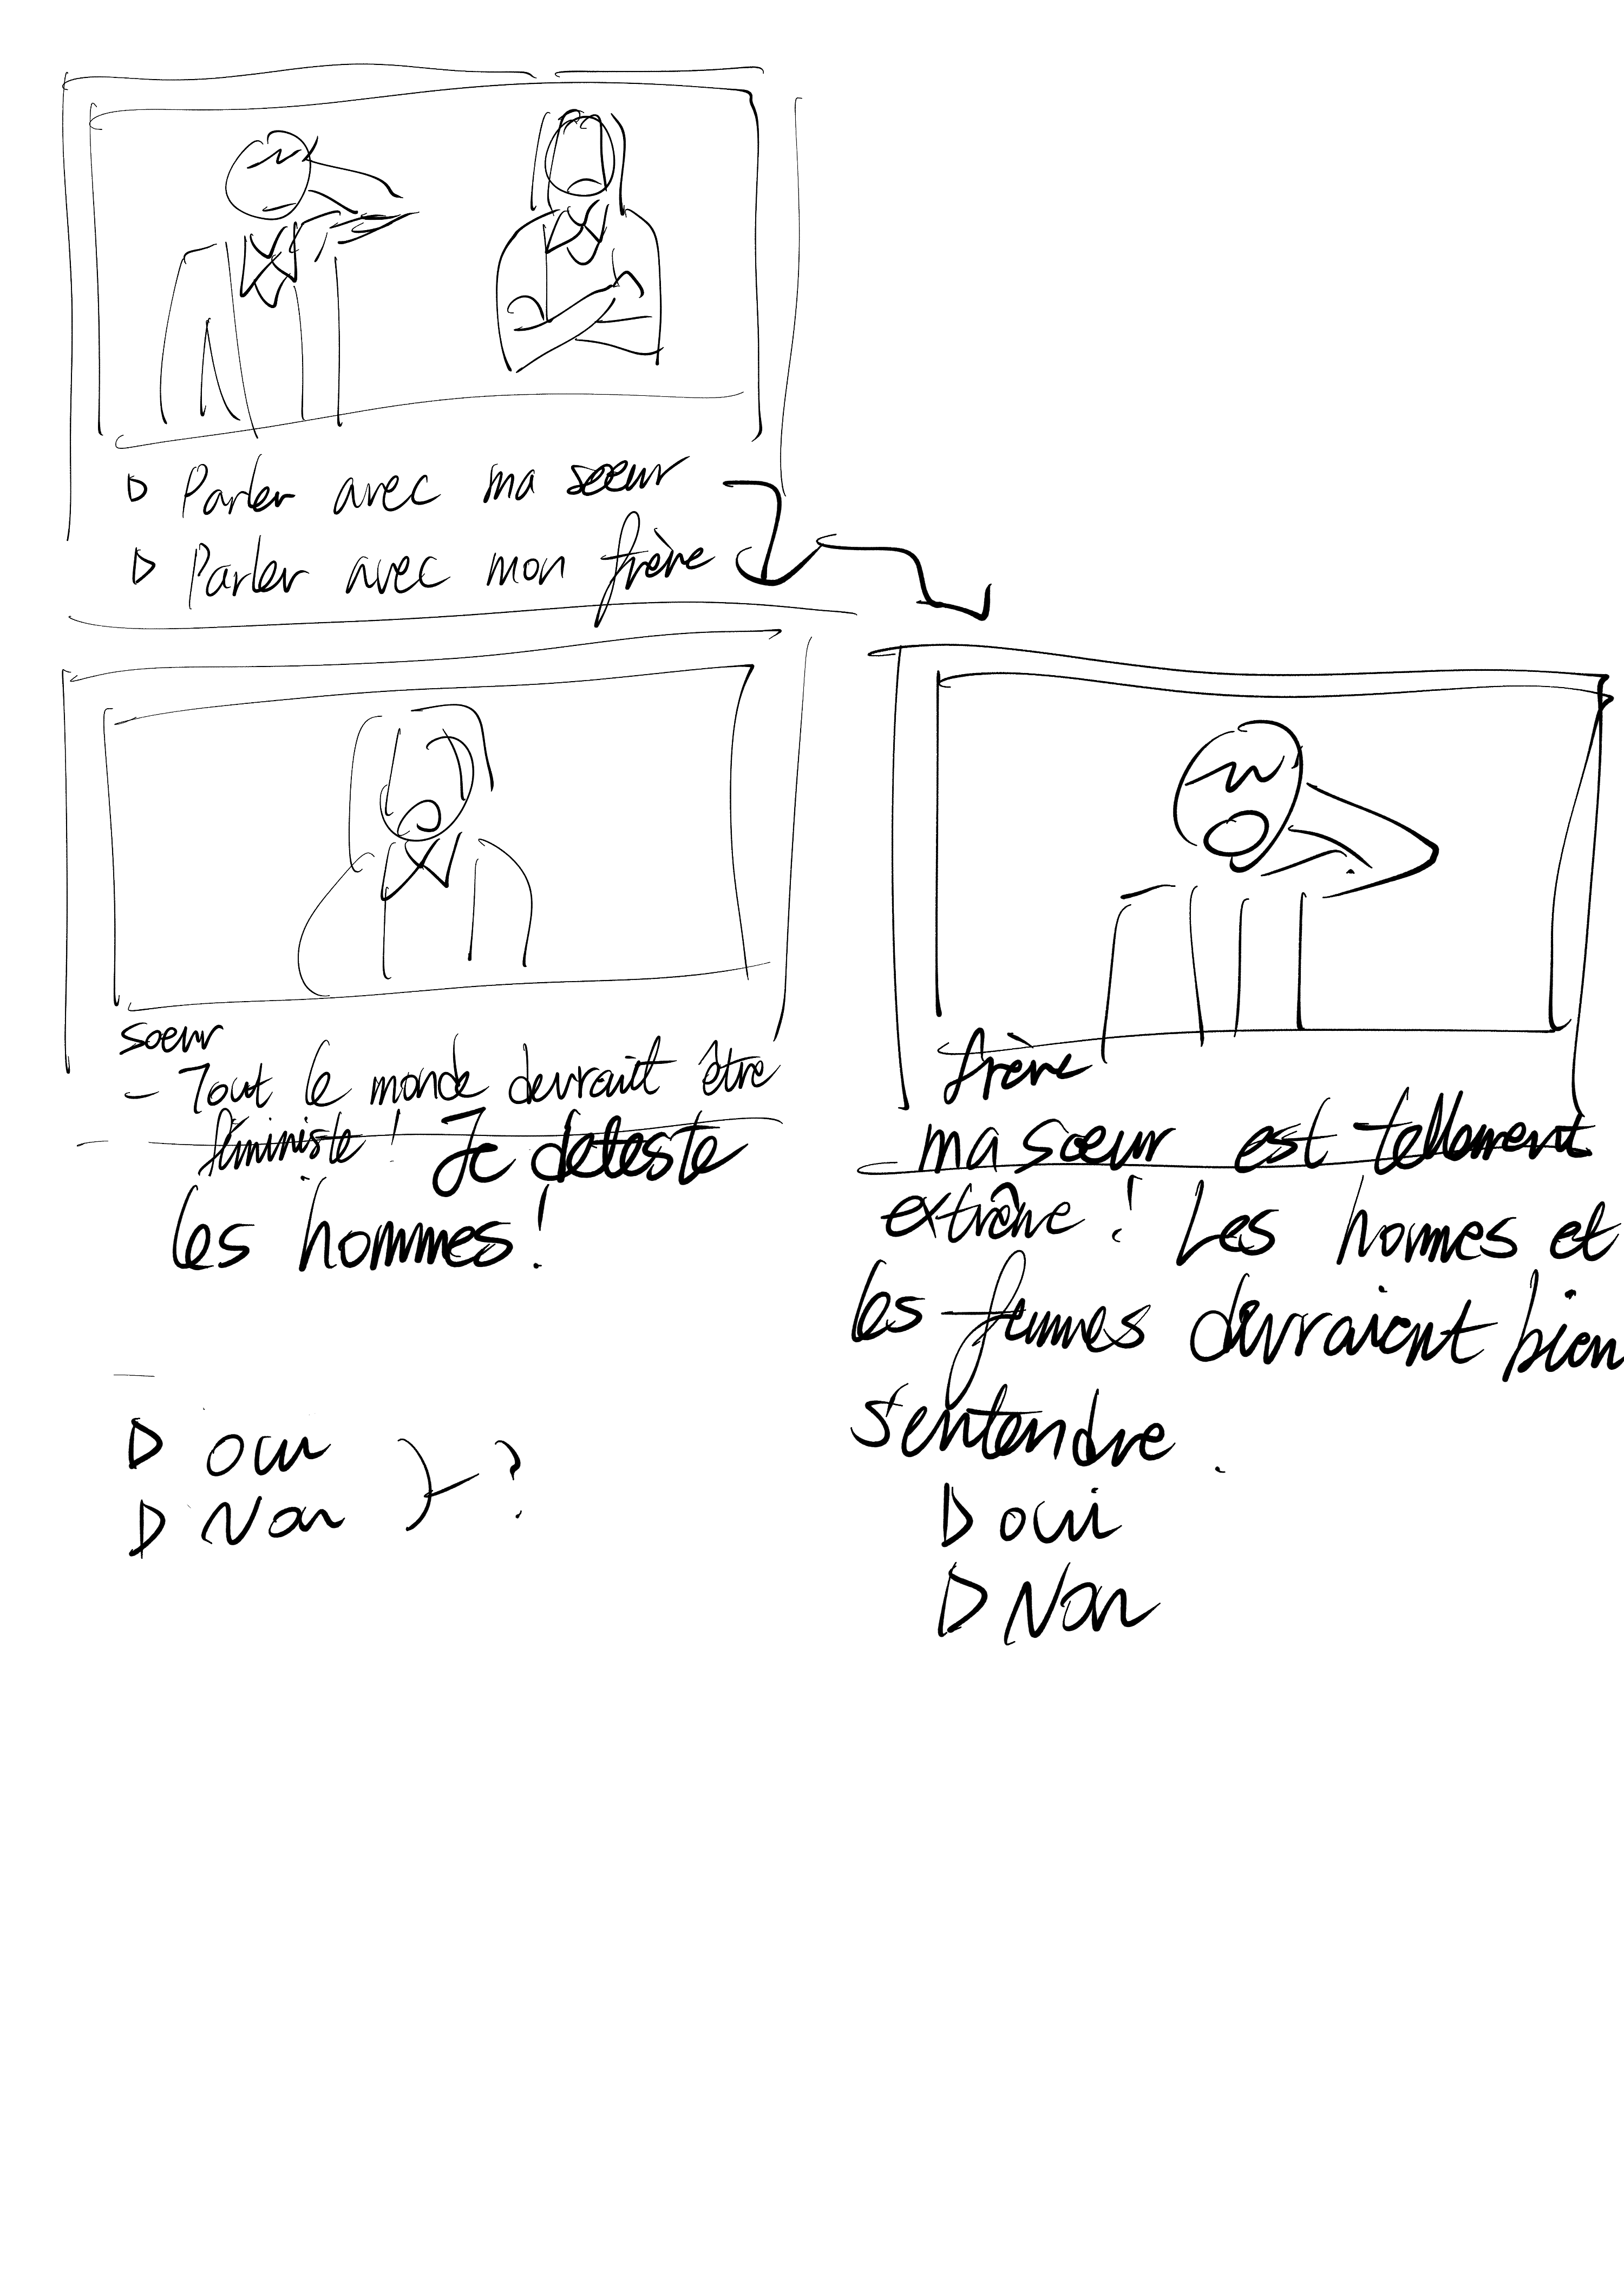 Parler avec ma soeur
Parler avec mon frère
soeur
- Tout le monde devrait être
féministe ! Je déteste
les hommes !
oui
Non
?
frère
ma sœur est tellement
extrême ! Les hommes et
les femmes devraient bien
s'entendre.
oui
Non